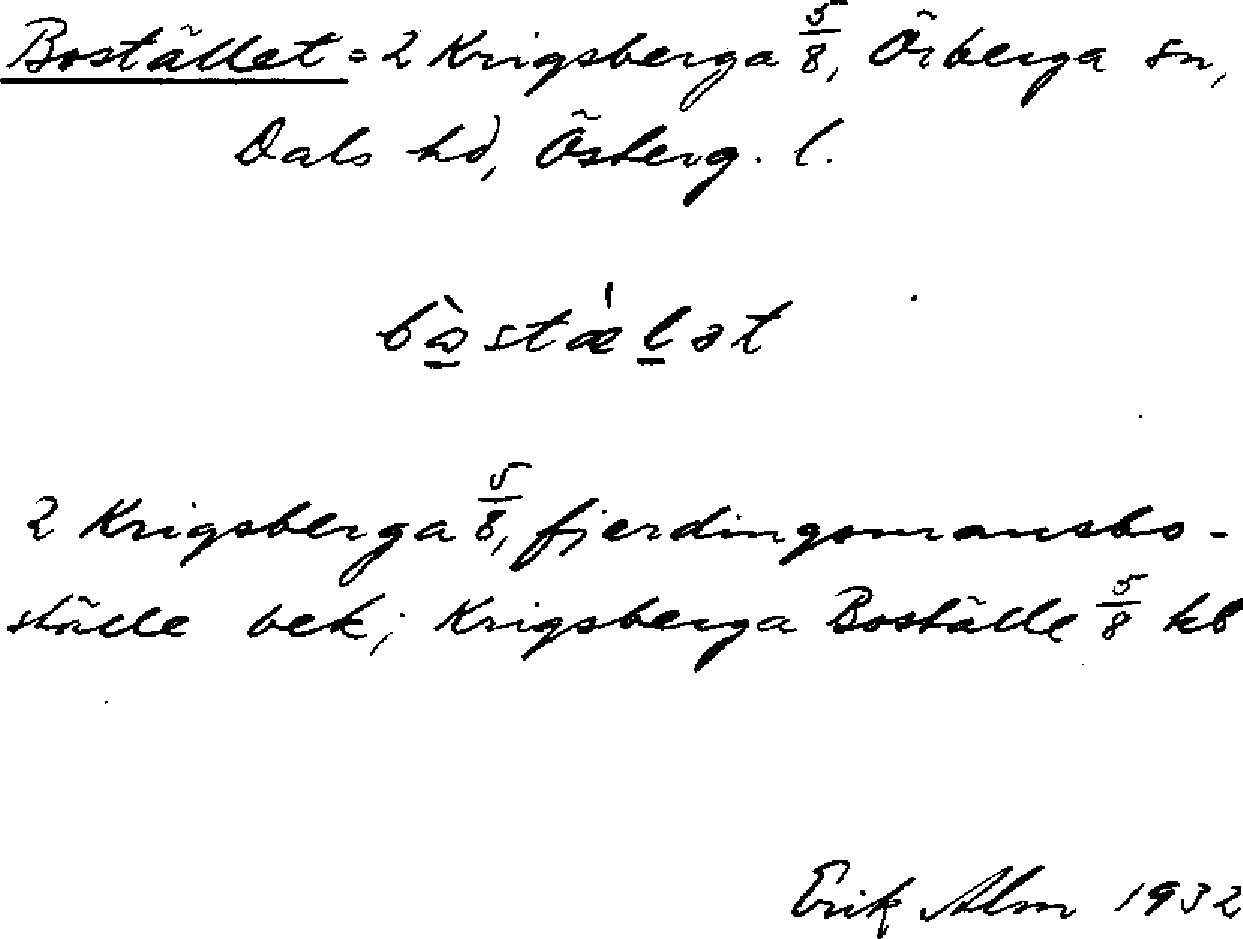 Bostället = 2 Krigsberga 5/8, Örberga sn,
Dals hd, Österg. l.
bòstæ̍lət
2 Krigsberga 5/8, fjerdingsmansbo-
ställe bek; Krigsberga Boställe 5/8 kb
Erik Alm 1932